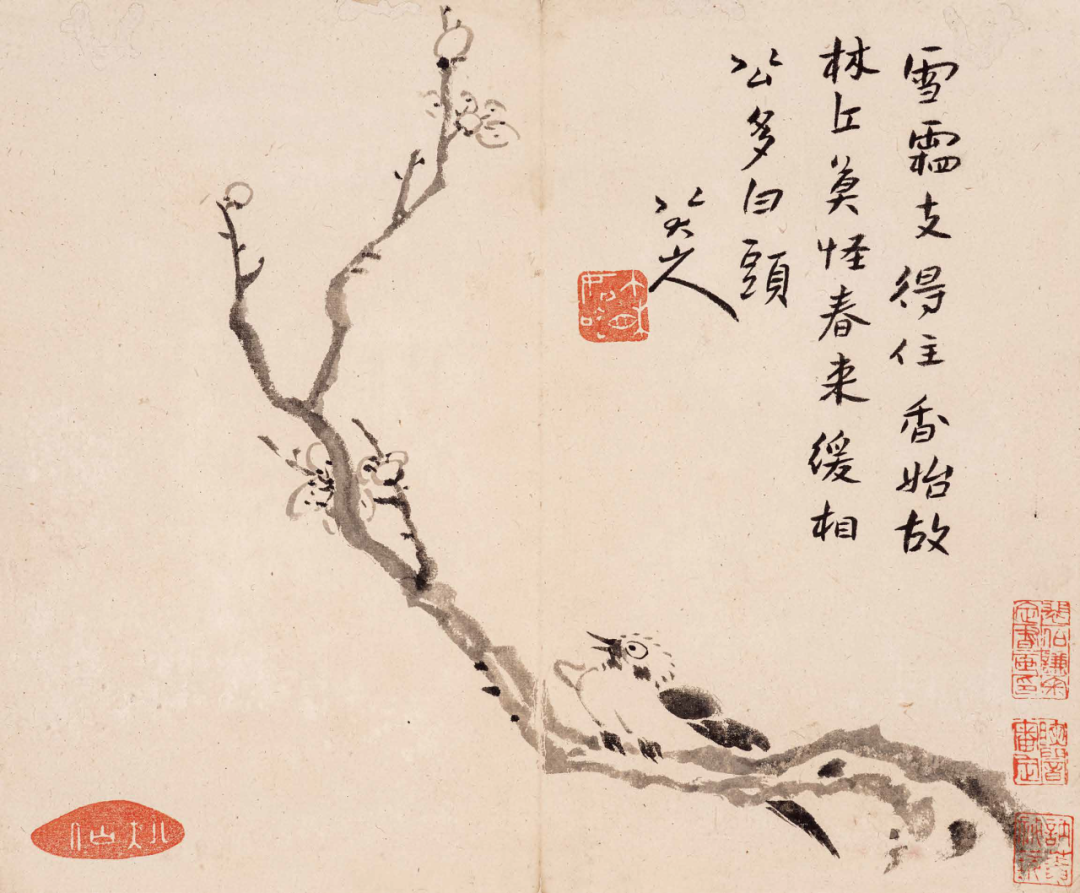 雪霜支得住香始故
林丘莫怪春来緩相
公多白頭
八大山人